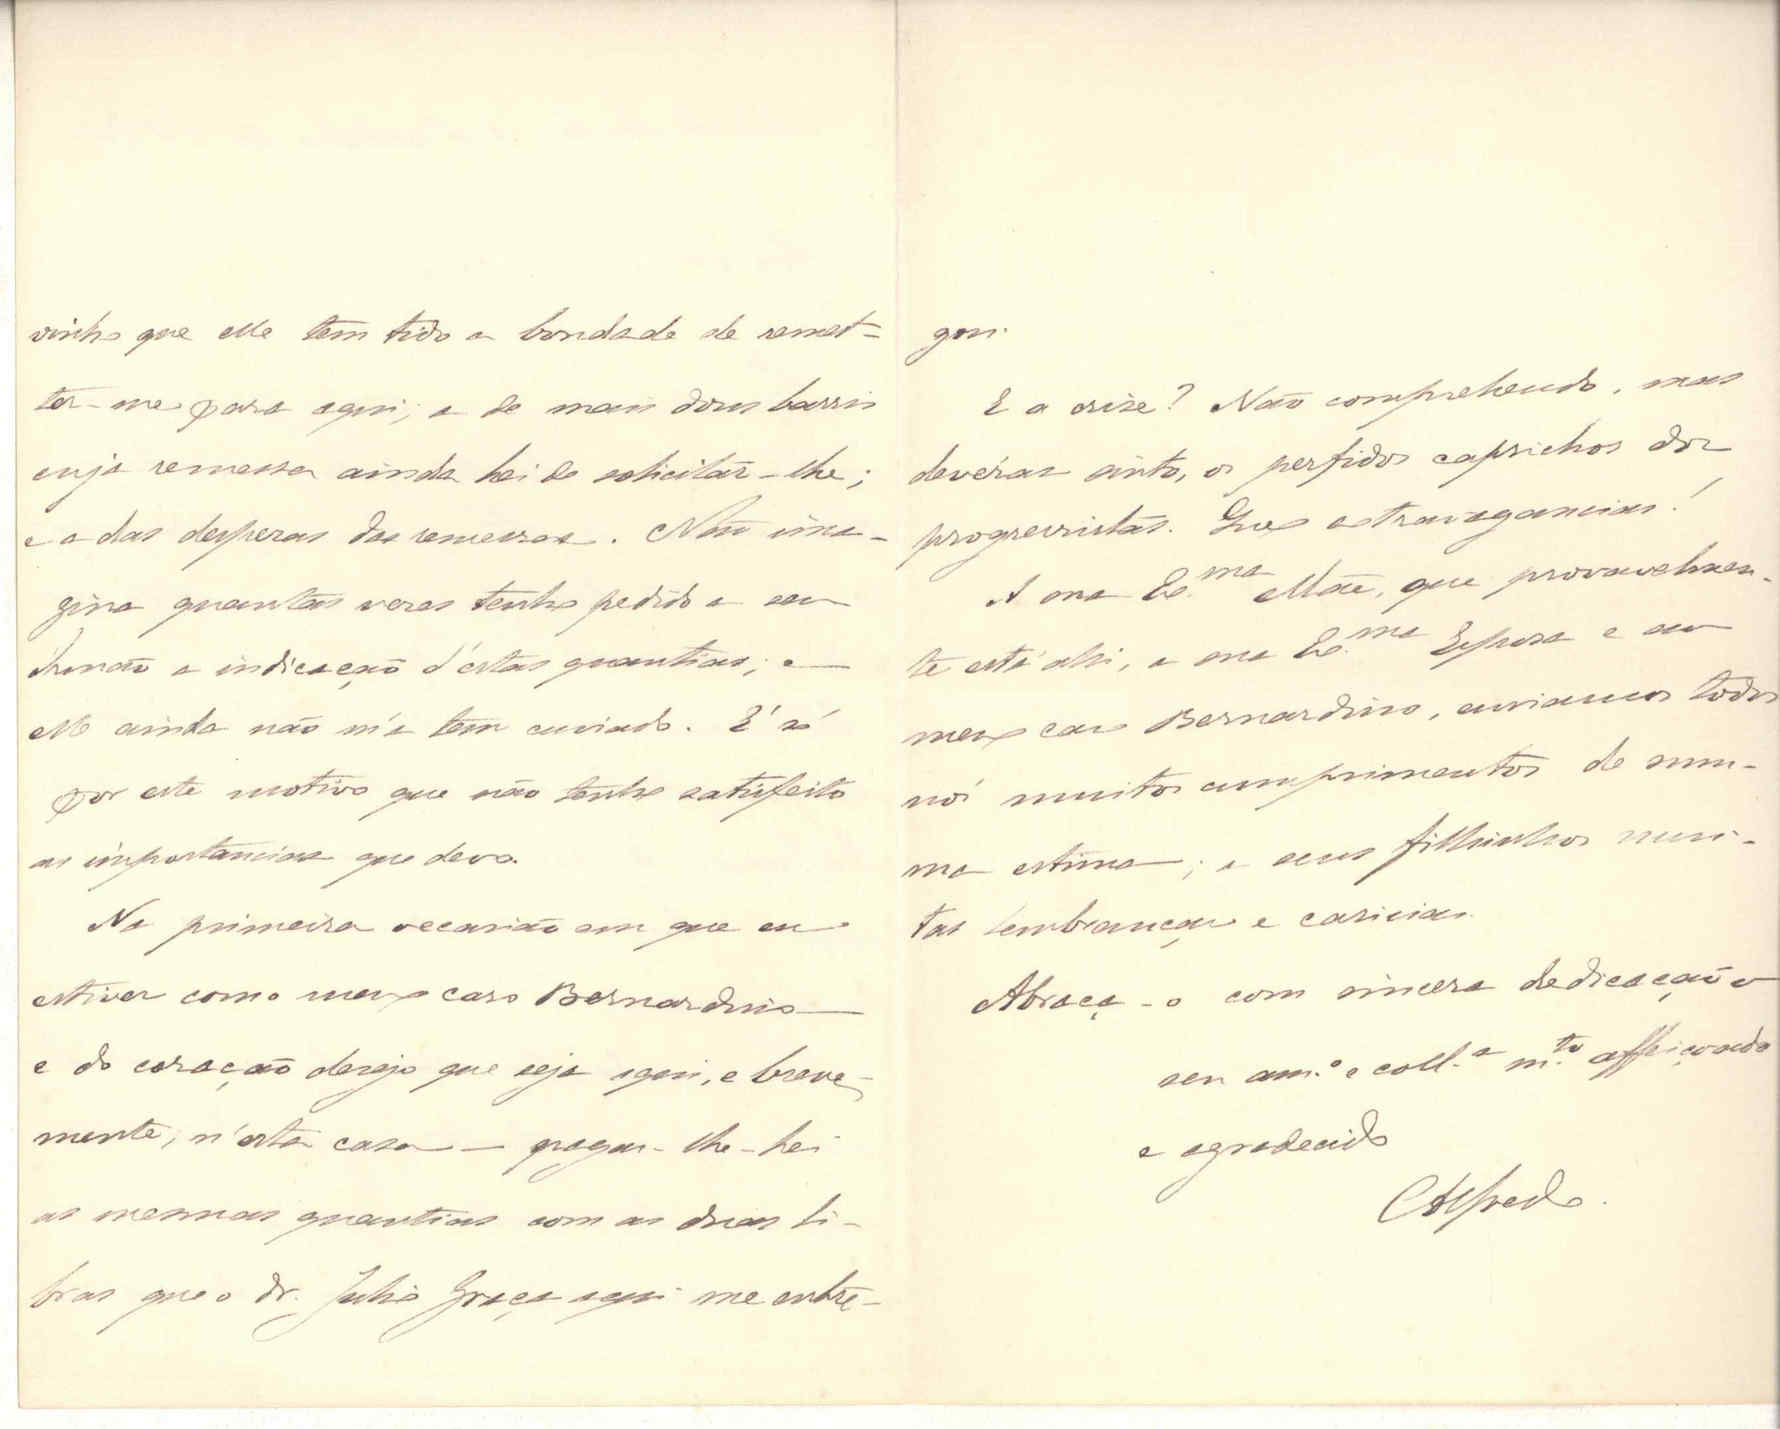 vinho que elle tem tido a bondade de remet=
ter-me para aqui; a de mais dous barris
cuja remessa ainda hei de solicitar-lhe;
e a das despezas das remessas. Não ima-
gina quantas vezes tenho pedido a seu
Irmão a indicação d'estas quantias; e
elle ainda não m'a tem enviado. E' só
por este motivo que não tenho satisfeito
as importancias que devo.
Na primeira occasião em que eu
estiver com o meu caro Bernardino —
e do coração desejo que seja aqui, e breve-
mente, n'esta casa — pagar-lhe-hei
as mesmas quantias com as duas li-
bras que o dr. Julio Graça aqui me entre-
gou.
E a crise? Não comprehendo, mas
devéras sinto, os perfidos caprichos dos
progressistas. Que extravagancias!
A sua Ex.ma Mãe, que provavelmen-
te está ahi, a sua Ex.ma Esposa e ao
meu caro Bernardino, enviamos todos
nós muitos cumprimentos de sum-
ma estima; a seus filhinhos mui-
tas lembranças e caricias.
Abraça-o com sincera dedicação o
seu am.o e coll.a m.to affeiçoado
e agradecido
Alfredo.